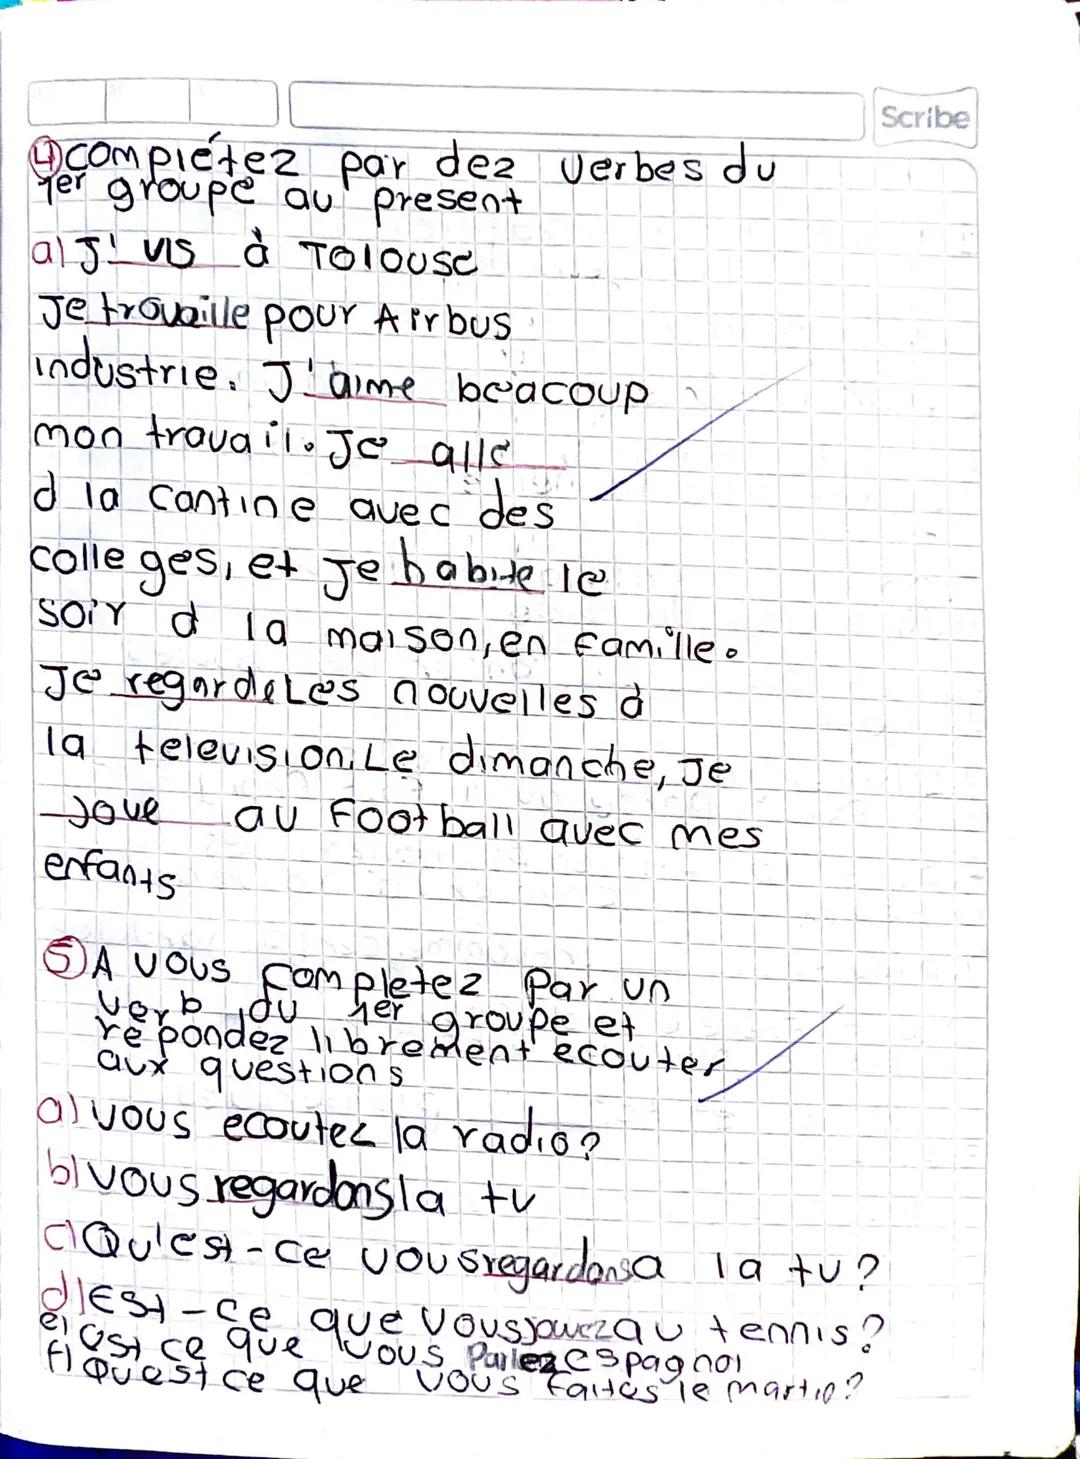 Scribe
④ complétez par dez verbes du
1er groupe au present
a) J' vis à Tolouse
Je travaille pour Airbus
industrie. J'aime beacoup
mon travail. Je alle
d la cantine avec des
colleges, et Je habite le
soir d la maison, en famille.
Je regarde Les nouvelles à
la television. Le dimanche, Je
joue au Football avec mes
enfants
⑤ A vous completez Par un
verb du 1er groupe et
repondez librement ecouter
aux questions
a) vous ecoutez la radio?
b) vous regardons la tv
c) Qu'est-ce vous regardons a la tv?
d) Est-ce que vous jouez au tennis?
e) est ce que vous Parlez espagnol
f) Quest ce que vous faites le